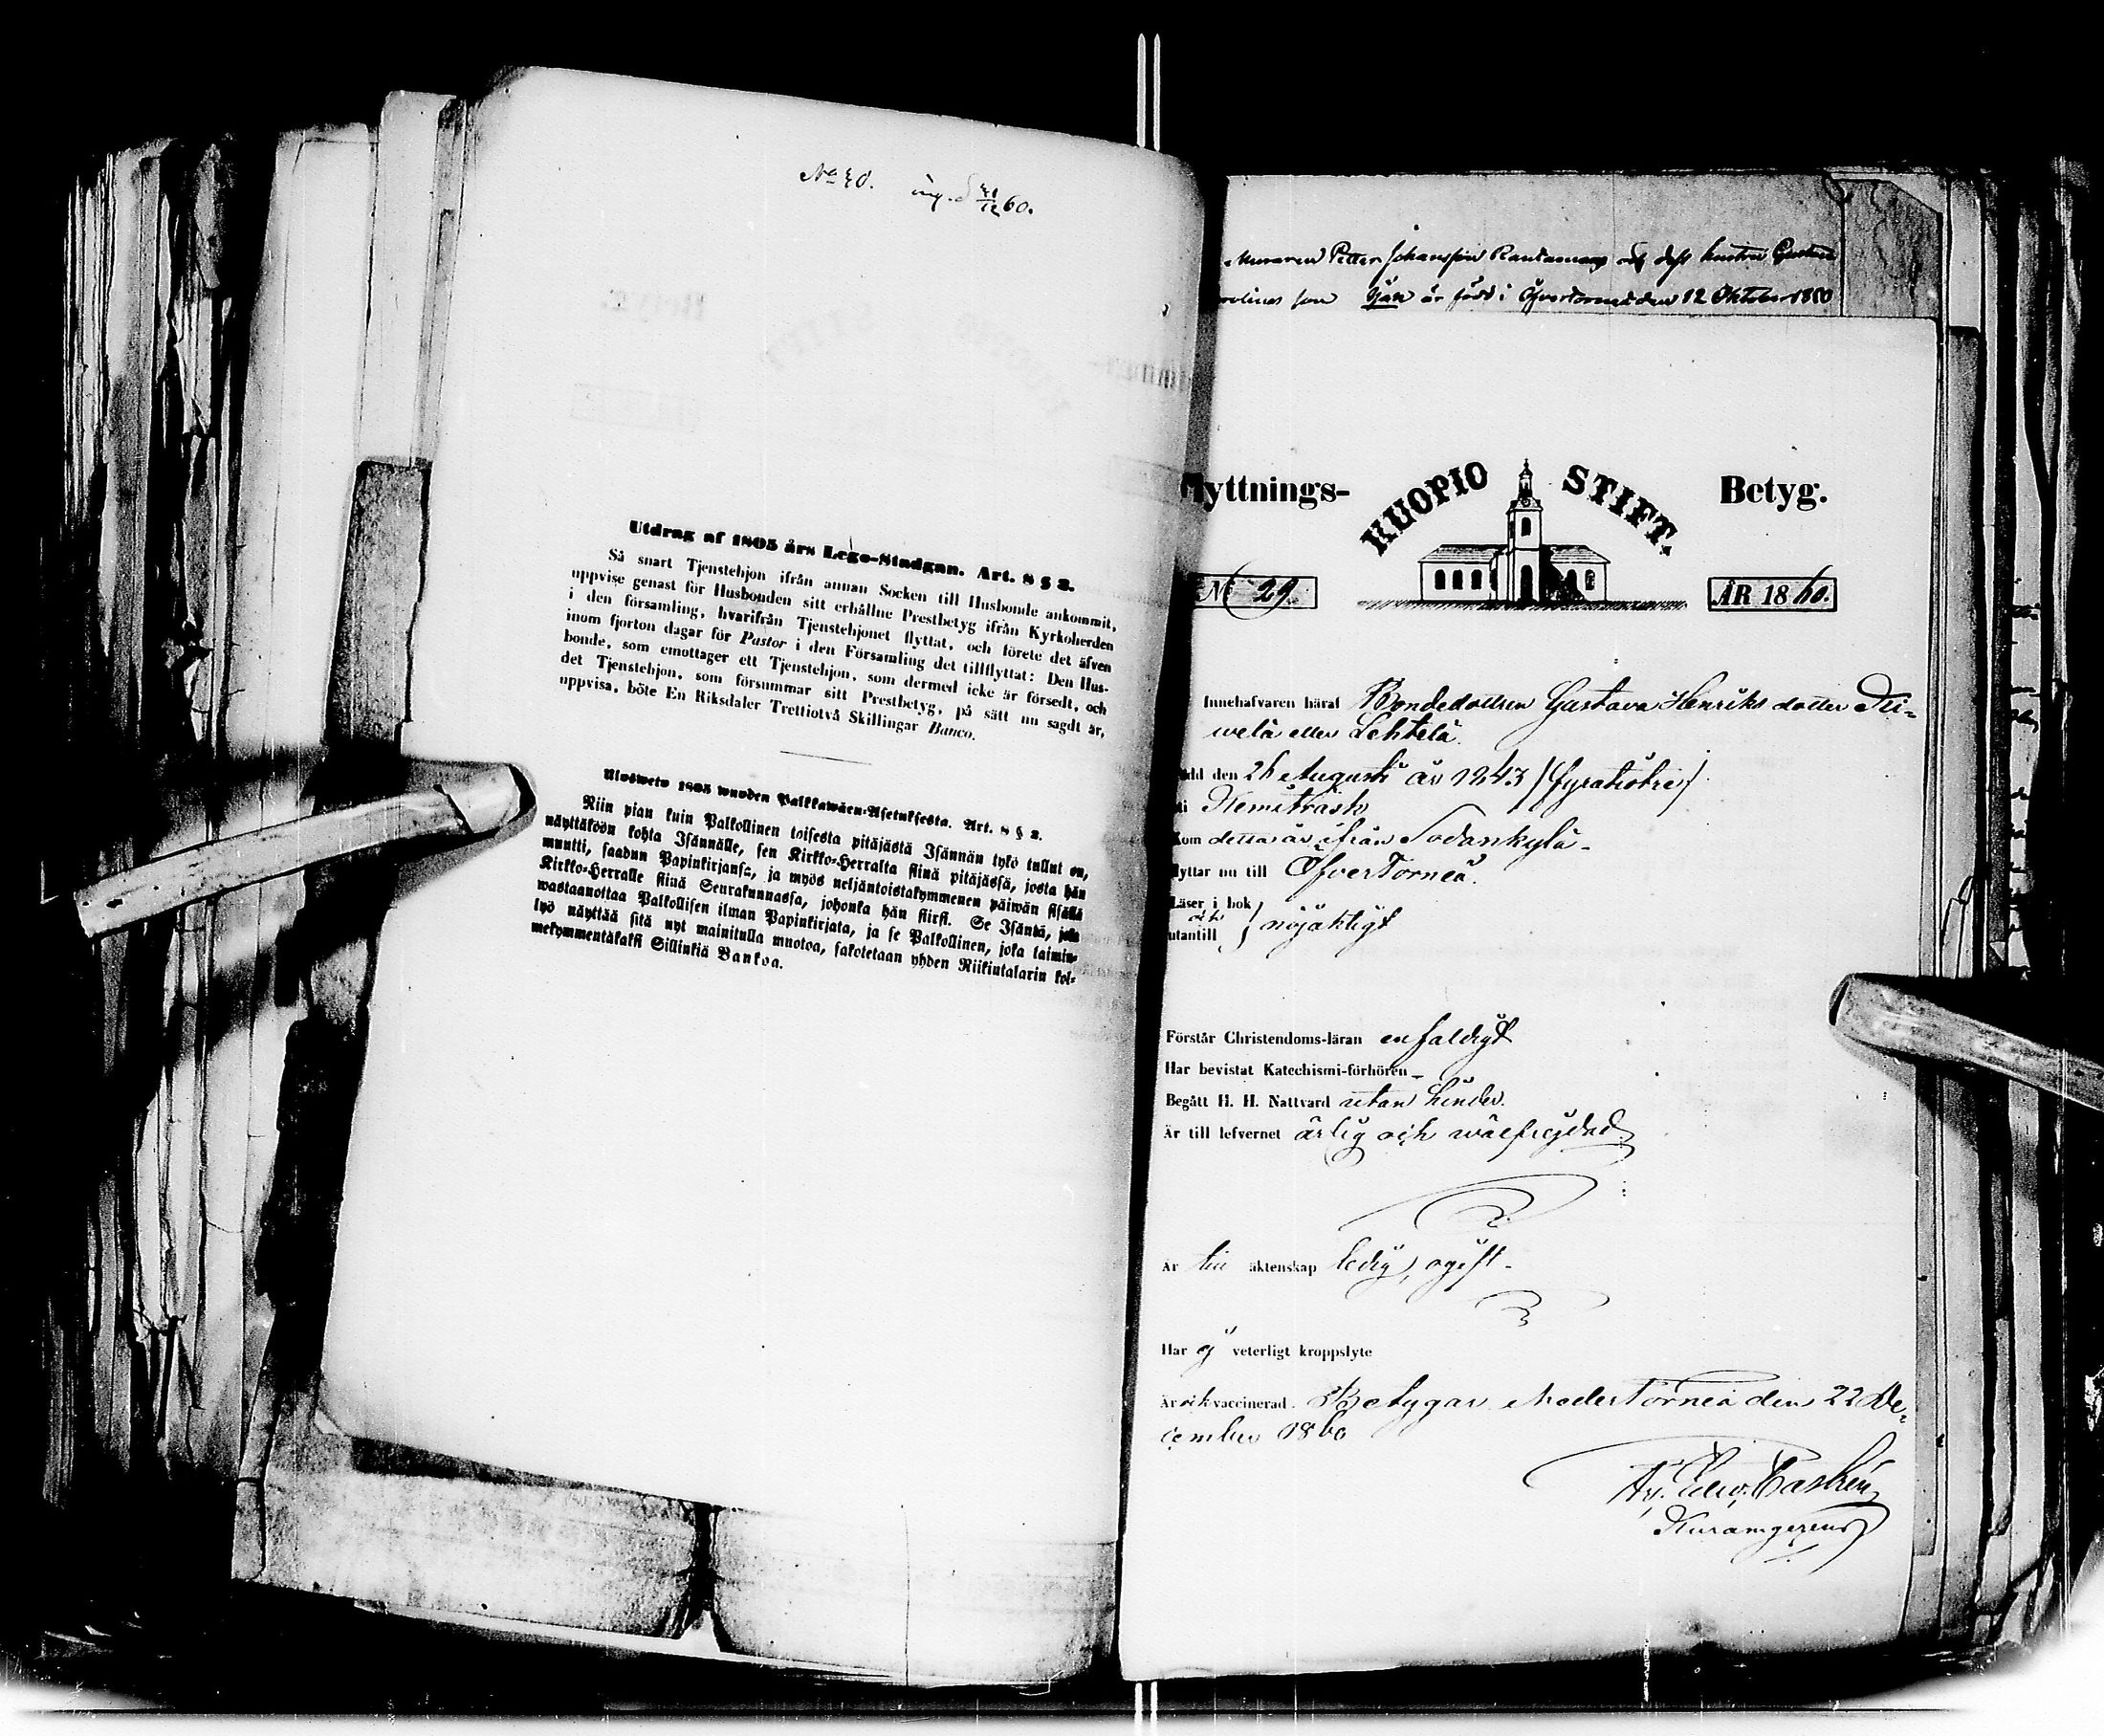 No 40. ing. d 31/12 60.
Utdrag af 1805 års Lego-Stadgan. Art. 8 § 2.
Så snart Tjenstehjon ifrån annan Socken till Husbonde ankommit,
uppvise genast för Husbonden sitt erhållne Prestbetyg ifrån Kyrkoherden
i den församling, hvarifrån Tjenstehjonet flyttat, och förete det äfven
inom fjorton dagar för Pastor i den Församling det tillflyttat: Den Hus-
bonde, som emottager ett Tjenstehjon, som dermed icke är försedt, och
det Tjenstehjon, som försummar sitt Prestbetyg, på sätt nu sagdt är,
uppvisa, böte En Riksdaler Trettiotvå Skillingar Banco.
Ulosweto 1805 wuoden Palkkawäen-Asetuksesta. Art. 8 § 2.
Niin pian kuin Palkollinen toisesta pitäjästä Isännän tykö tullut on,
näyttäköön kohta Isännälle, sen Kirkko-Herralta siinä pitäjässä, josta hän
muutti, saadun Papinkirjansa, ja myös neljäntoistakymmenen päiwän sisällä
Kirkko-Herralle siinä Seurakunnassa, johonka hän siirsi. Se Isäntä, joka
wastaanottaa Palkollisen ilman Papinkirjata, ja se Palkollinen, joka laimin-
lyö näyttää sitä nyt mainitulla muotoa, sakotetaan yhden Riikintalarin kol-
mekymmentäkaksi Sillinkiä Bankoa.
Muraren Petter Johansson Rantamaa och dess hustru Gustava
son är född i Öfvertorneå den 12 Oktober 1860
Flyttnings- KUOPIO STIFT. Betyg.
N 29. ÅR 1860.
Innehafvaren häraf Bondedottren Gustava Henriks dotter Ki-
welä eller Lehtelä.
Född den 26 Augusti år 1843 /fyratiotre/
i Kemiträsk
Kom detta år ifrån Sodankylä-
Flyttar nu till ÖfverTorneå.
Läser i bok
och
utantill } nöjaktigt
Förstår Christendoms-läran enfaldigt
Har bevistat Katechismi-förhören -
Begått H. H. Nattvard utan hinder.
Är till lefvernet ärlig och wälfrejdad
Är till äktenskap ledig, ogift.
Har ej veterligt kroppslyte
Är ock vaccinerad. Betygar NederTorneå den 22 De-
cember 1860
Fr. Edw. Castrén